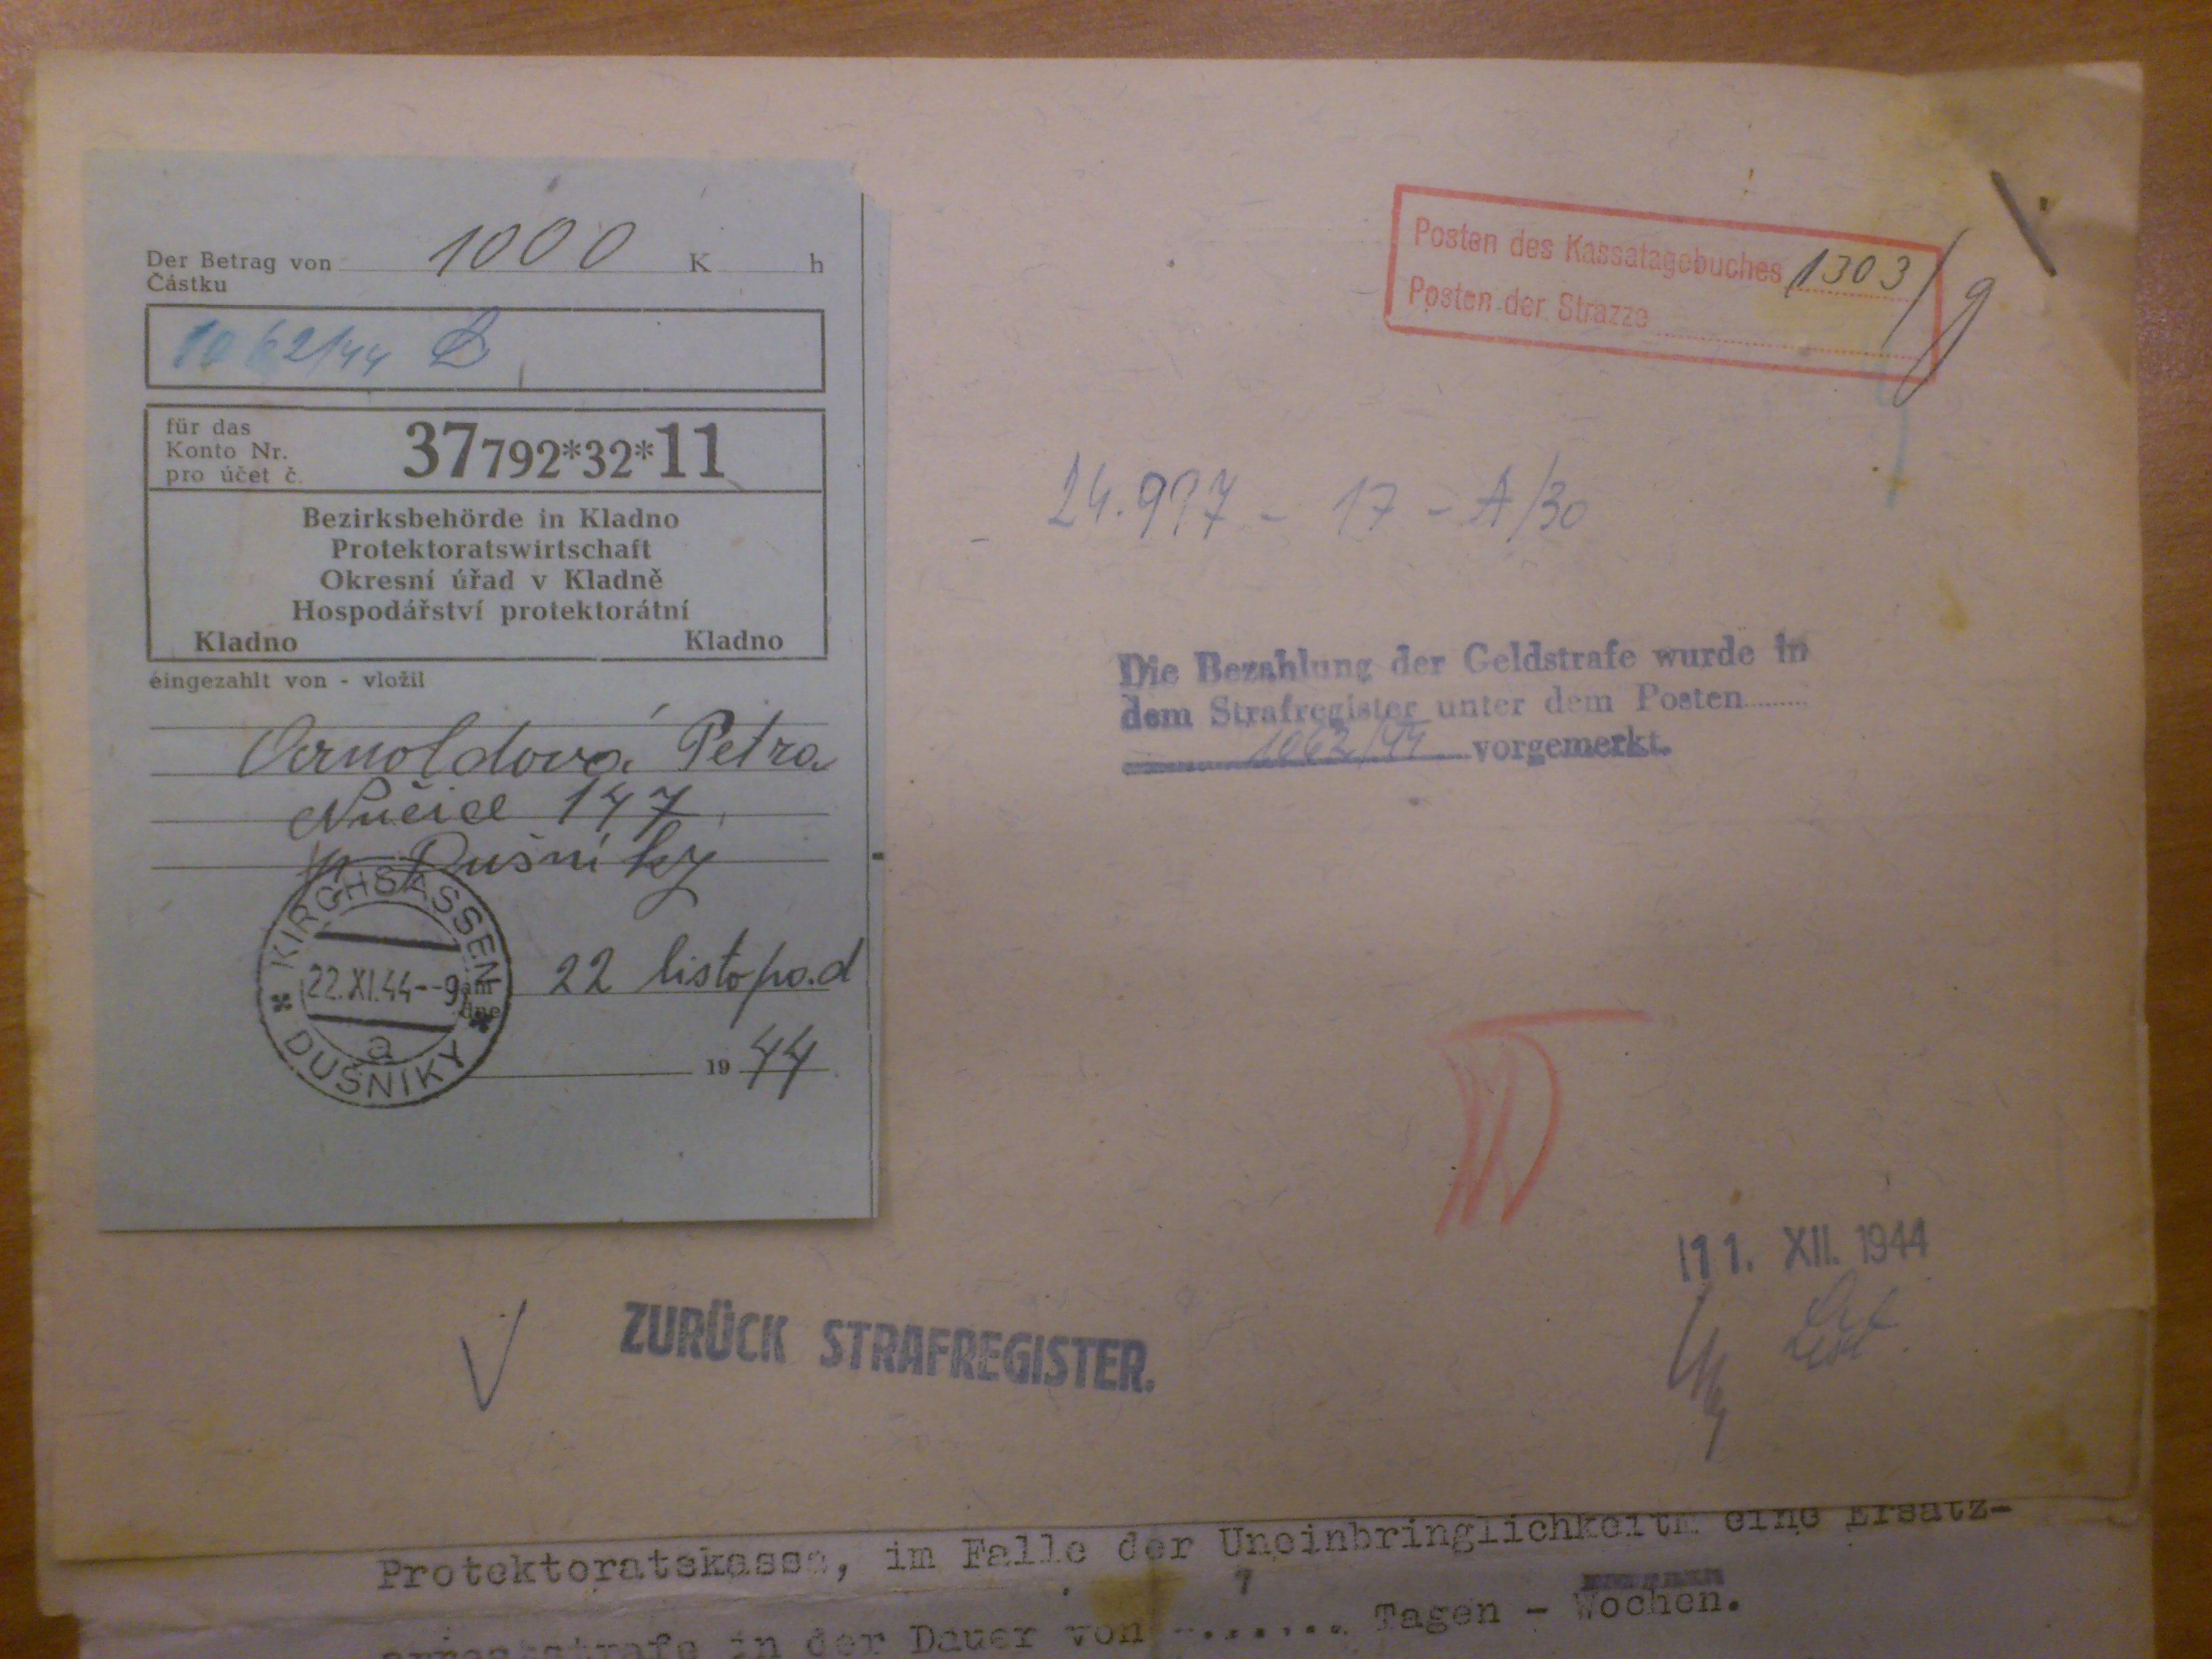 Der Betrag von 1000 K h
Částku
1062/44
für das
Konto Nr.
pro účet č.
37792*32*11
Bezirksbehörde in Kladno
Protektoratswirtschaft
Okresní úřad v Kladně
Hospodářství protektorátní
Kladno Kladno
eingezahlt von - vložil
Arnoldová Petra
Nučice 147
p. Dušníky
KIRCHSASSEN
22.XI.44--9
a
DUŠNIKY
am
dne
22 listopad
1944
Posten des Kassatagebuches 1303/g
Posten der Strazze
24.997 - 17 - A/30
Die Bezahlung der Geldstrafe wurde in
dem Strafregister unter dem Posten
1062/44 vorgemerkt.
11. XII. 1944
ZURÜCK STRAFREGISTER.
Protektoratskasse, im Falle der Uneinbringlichkeitm eine Ersatz-
arreststrafe in der Dauer von 7 Tagen - Wochen.